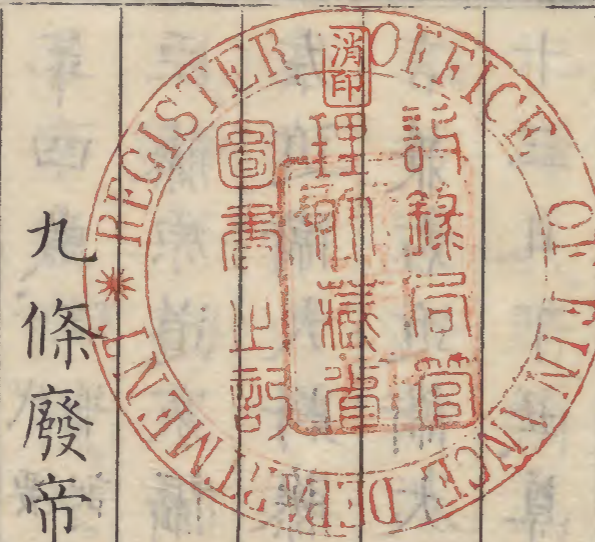 REGISTER OFFICE OF FINANCE DEPARTMENT
消印
記錄局管
理所藏
圖書之記
九條廢帝